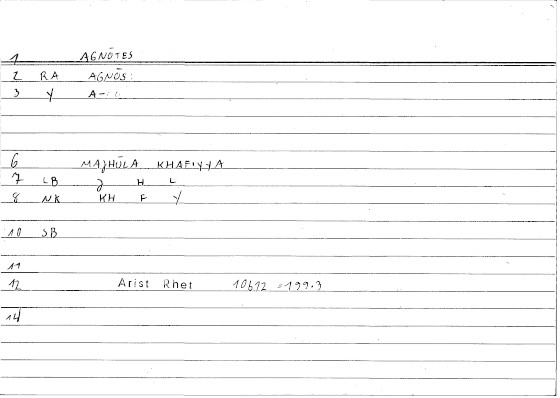 1 AGNŌTES
2 RA AGNŌS:
3 Y A-
6 MAJHŪLA KHAFIYYA
7 LB J H L
8 NK KH F Y
10 SB
11
12 Arist Rhet 10612 =199.3
14